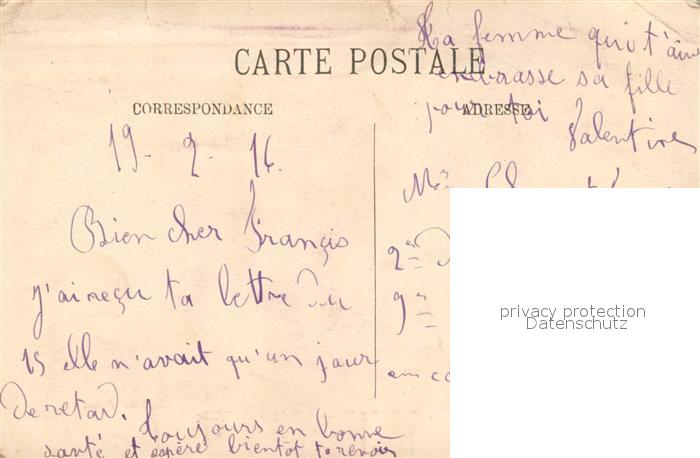 Ta femme qui t'aime
embrasse sa fille
pour toi
Valentine
CARTE POSTALE
CORRESPONDANCE
ADRESSE
19 - 2 - 16.
Bien cher Françis
J'ai reçu ta lettre du
15 elle n'avait qu'un jour
de retard. Toujours en bonne
santé et espère bientot te revoir
Mr
2e
9e
en ca
privacy protection
Datenschutz